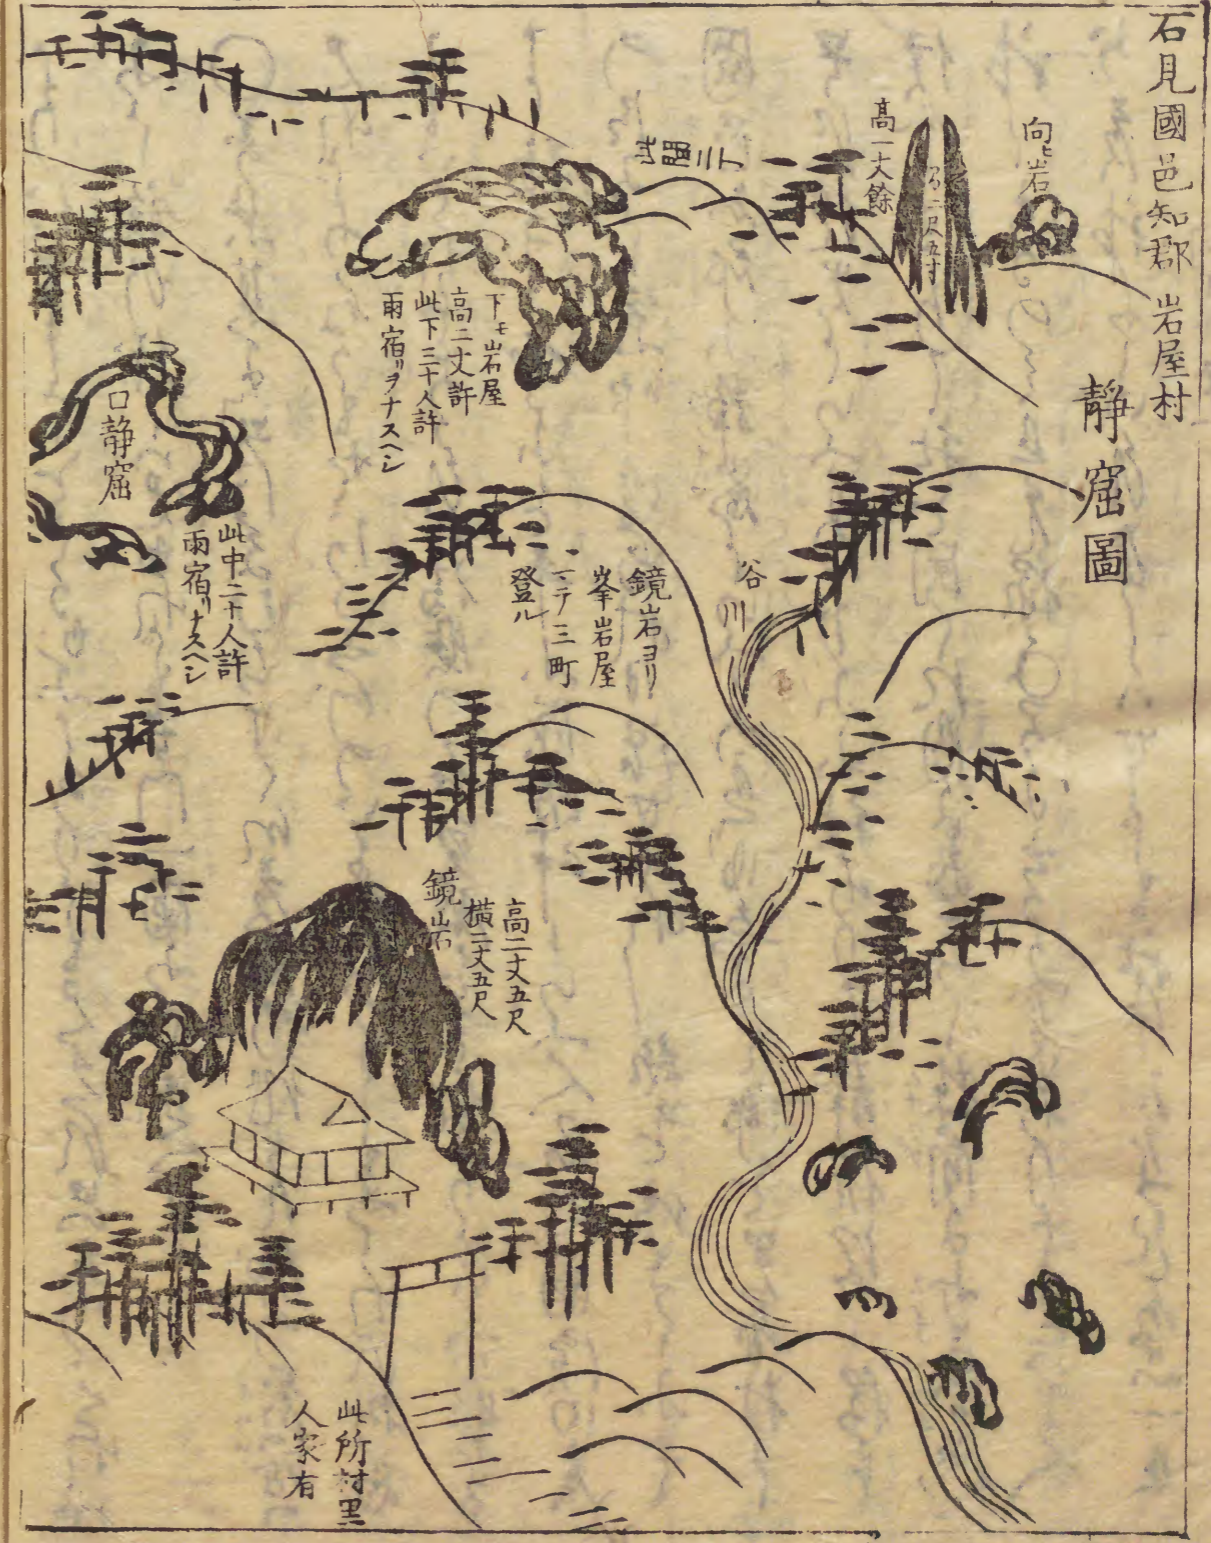 石見國邑知郡 岩屋村
靜窟圖
向ヒ岩
高一丈餘
此間三丁
下モ岩屋
高二丈許
此下三十人許
雨宿リヲナスヘシ
口靜窟
此中二十人許
雨宿リナスヘシ
谷川
鏡岩ヨリ
峯岩屋
マテ三町
登ル
鏡岩
高二丈五尺
橫二丈五尺
此所村里
人家有